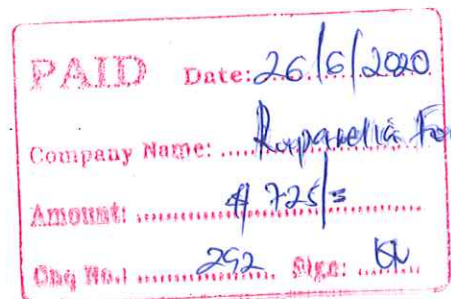 PAID Date: 26/6/2020
Company Name: Ruparelia Fo
Amount: $ 725/=
Chq No.: 292 Sign: